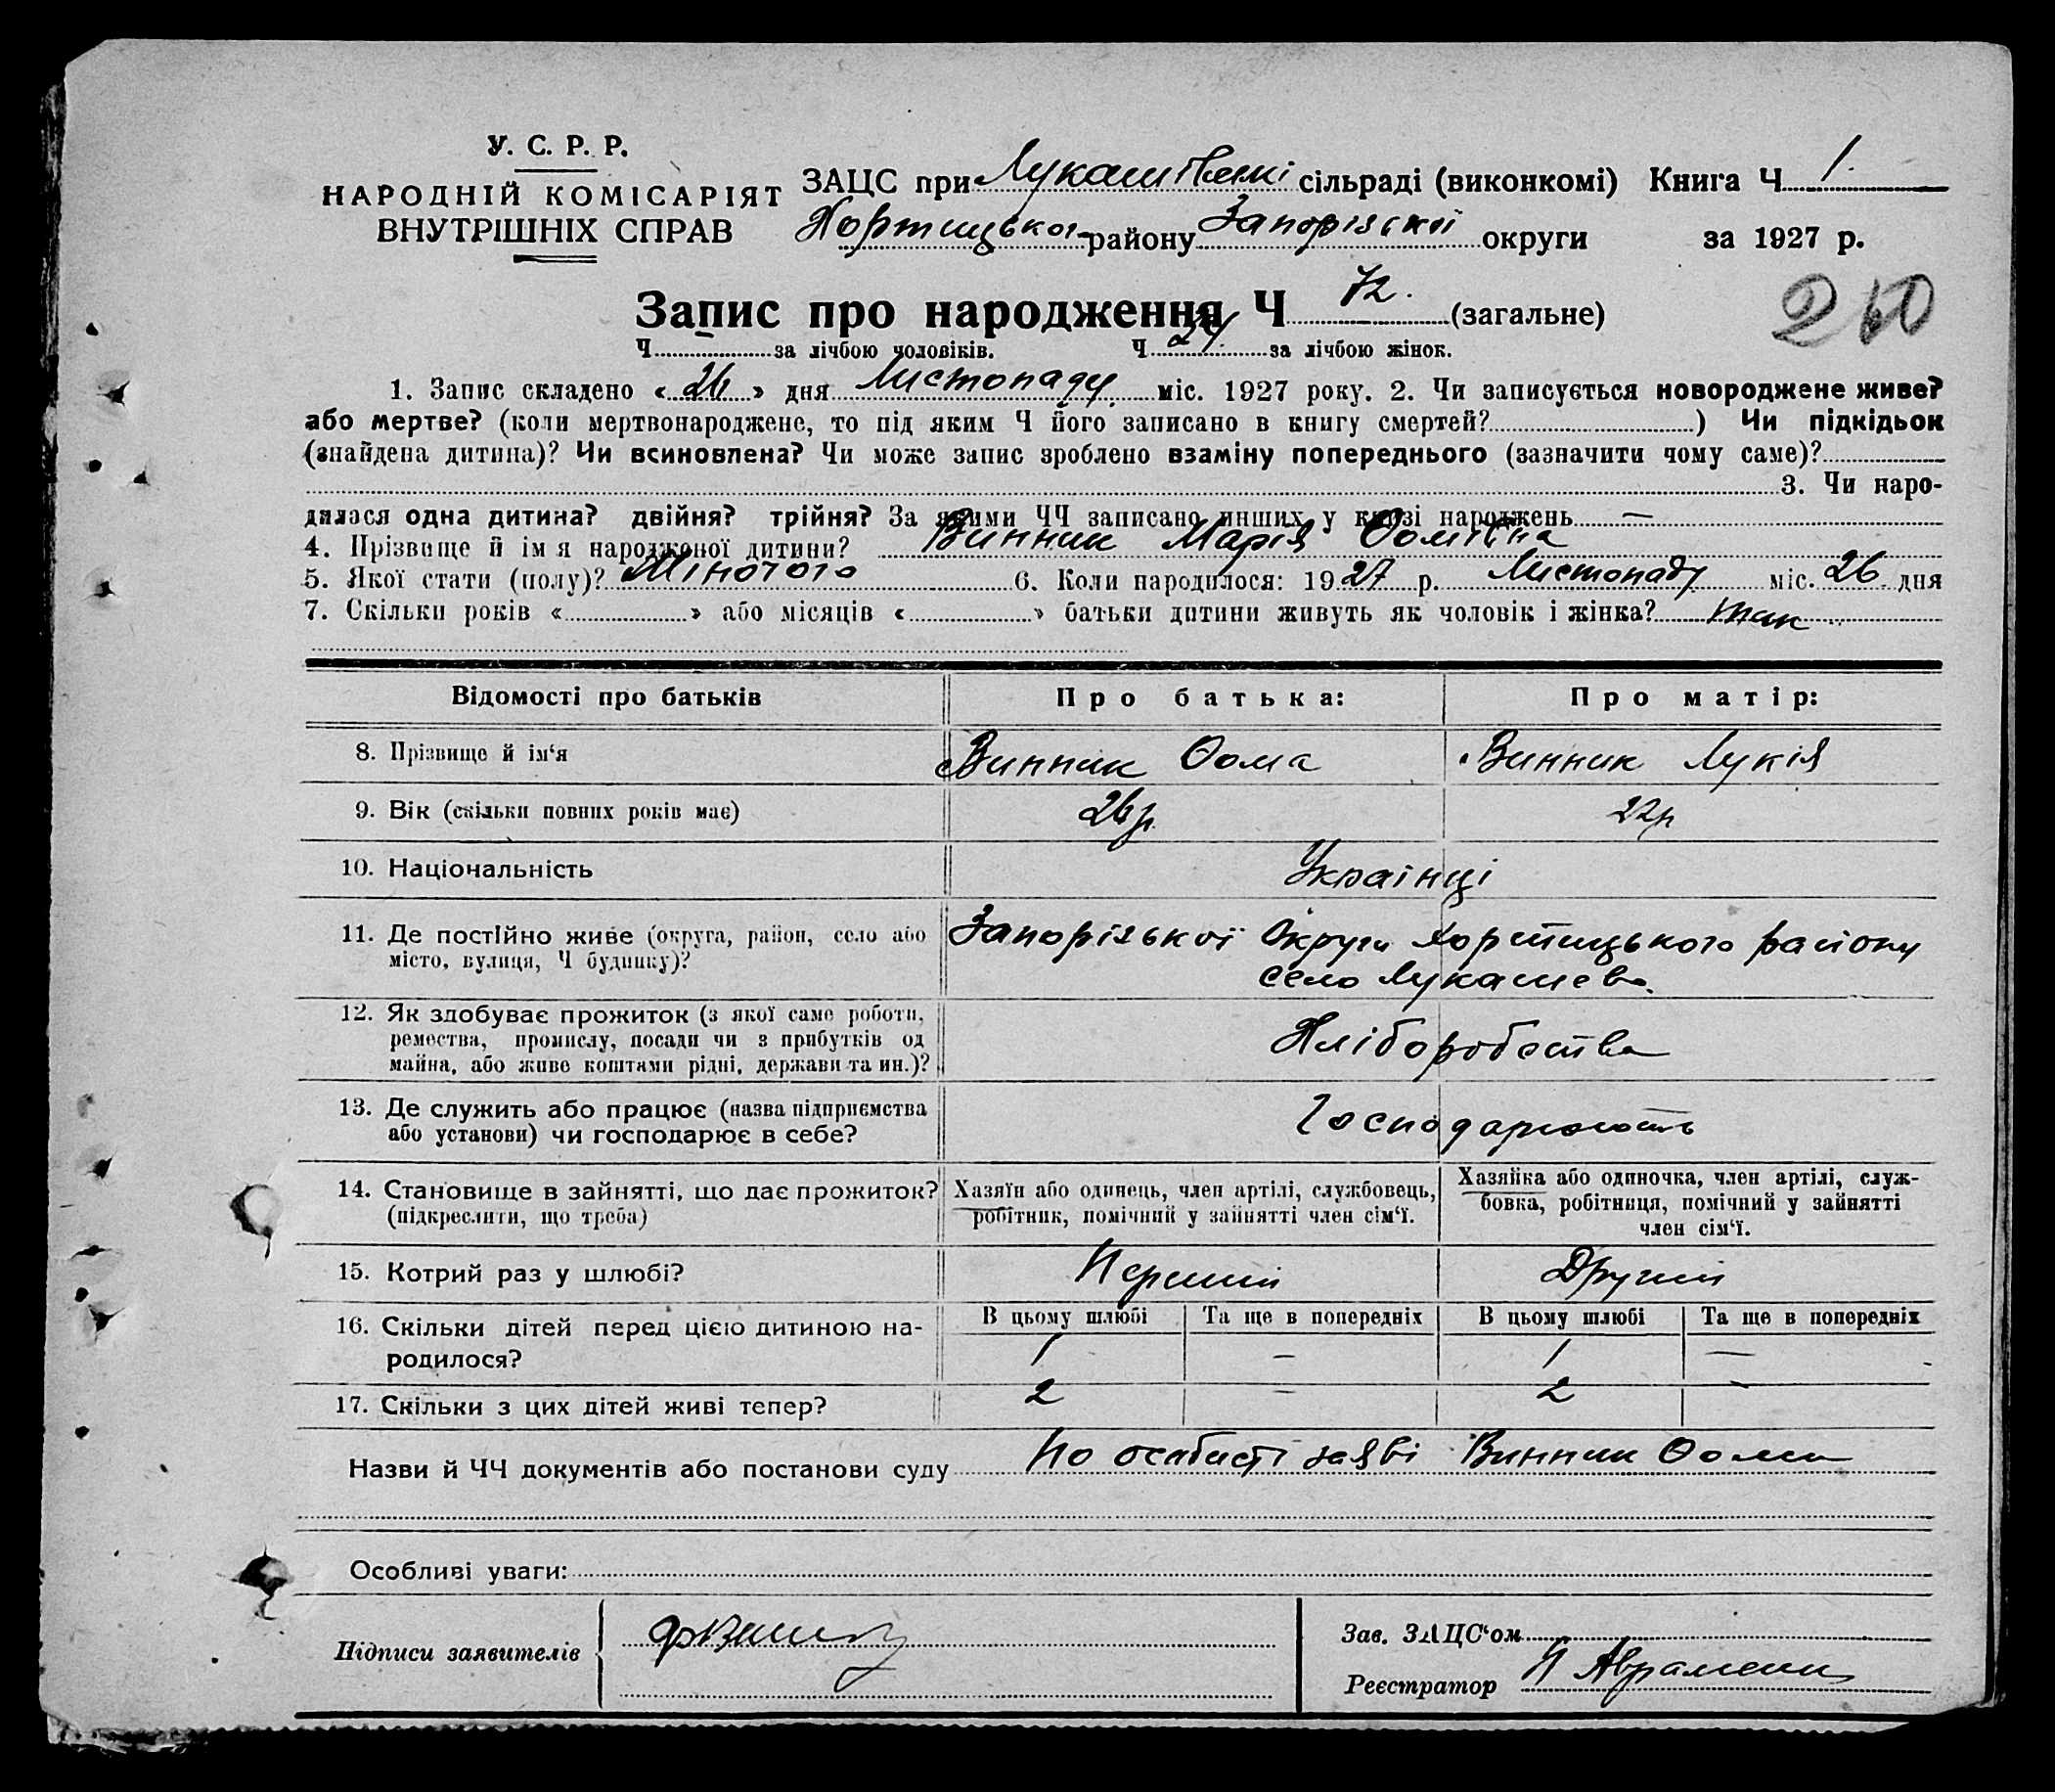 У. С. Р. Р.
НАРОДНІЙ КОМІСАРІЯТ
ВНУТРІШНІХ СПРАВ
ЗАЦС при Лукашівській сільраді (виконкомі) Книга Ч 1.
Хортицького району Запорізької округи за 1927 р.
Запис про народження Ч 72. (загальне)
260
Ч — за лічбою чоловіків. Ч 24. за лічбою жінок.
1. Запис складено « 26 » дня Листопаду міс. 1927 року. 2. Чи записується новороджене живе?
або мертве? (коли мертвонароджене, то під яким Ч його записано в книгу смертей? ) Чи підкідьок
(знайдена дитина)? Чи всиновлена? Чи може запис зроблено взаміну попереднього (зазначити чому саме)?
3. Чи наро-
дилася одна дитина? двійня? трійня? За якими ЧЧ записано инших у книзі народжень —
4. Прізвище й імя народженої дитини? Винник Марія Ѳомівна
5. Якої стати (полу)? Жіночого 6. Коли народилося: 1927 р. Листопаду міс. 26 дня
7. Скільки років « » або місяців « » батьки дитини живуть як чоловік і жінка? так
Відомості про батьків Про батька: Про матір:
8. Прізвище й ім'я Винник Ѳома Винник Лукія
9. Вік (скільки повних років має) 26 р. 22 р
10. Національність Українці
11. Де постійно живе (округа, район, село або Запорізької Округи Хортицького району
місто, вулиця, Ч будинку)? село Лукашево.
12. Як здобуває прожиток (з якої саме роботи,
ремества, промислу, посади чи з прибутків од Хліборобства
майна, або живе коштами рідні, держави та ин.)?
13. Де служить або працює (назва підприємства Господарюють
або установи) чи господарює в себе?
14. Становище в зайнятті, що дає прожиток? Хазяїн або одинець, член артілі, службовець, Хазяйка або одиночка, член артілі, служ-
(підкреслити, що треба) робітник, помічний у зайнятті член сім'ї. бовка, робітниця, помічний у зайнятті
член сім'ї.
15. Котрий раз у шлюбі? Перший Другий
16. Скільки дітей перед цією дитиною на- В цьому шлюбі Та ще в попередніх В цьому шлюбі Та ще в попередніх
родилося? 1 — 1 —
17. Скільки з цих дітей живі тепер? 2 — 2 —
Назви й ЧЧ документів або постанови суду По особисті заяві Винник Ѳоми
Особливі уваги:
Підписи заявителів
Зав. ЗАЦС'ом
Реєстратор